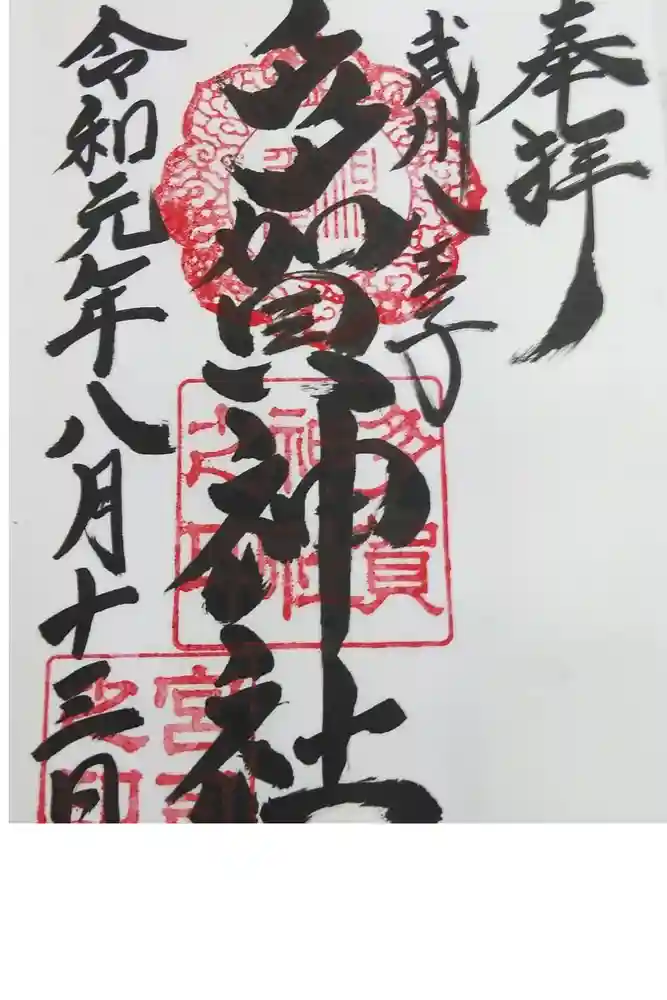 奉拝
武州八王子
多賀神社
令和元年八月十三日
多賀
神社
之印
宮司
之印